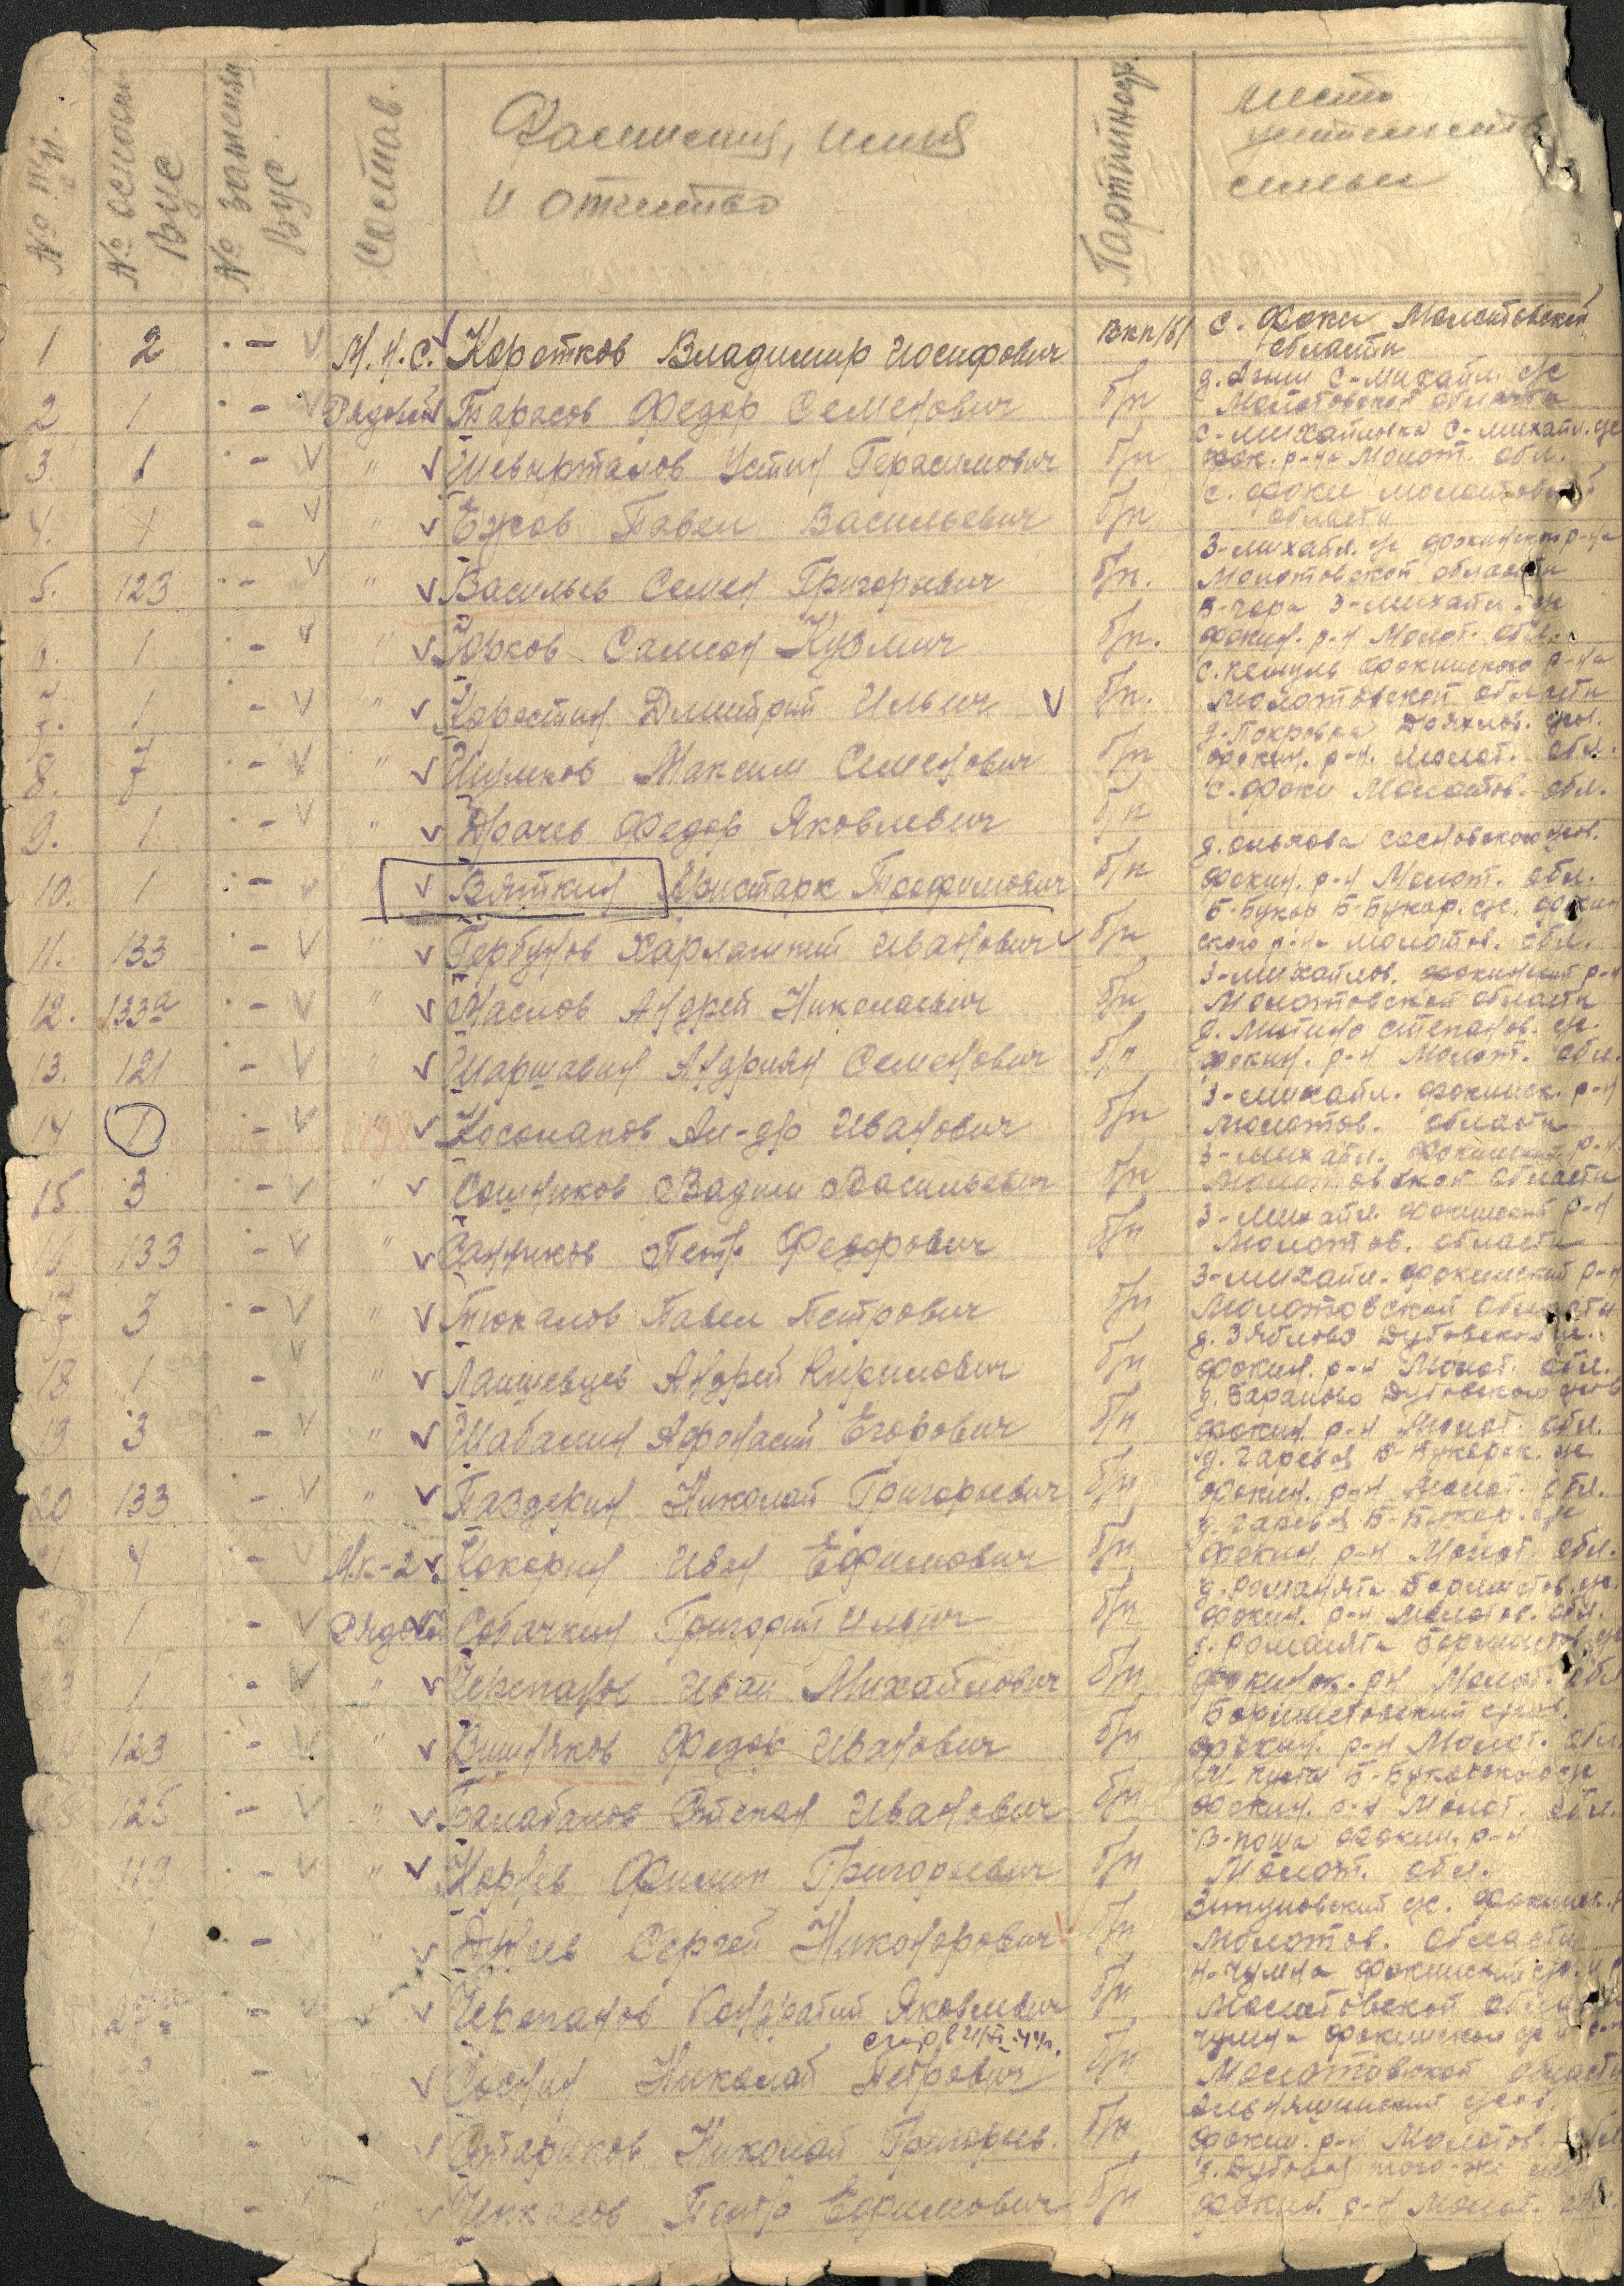 № п/п. № основн ВУС № замены ВУС. Состав. Фамилия, имя и отчество Партийность место жительства семьи
1 2 - М.н.с. Коротков Владимир Иосифович вкп/б/ с. Фоки Молотовской области
2 1 - Рядовой Тарасов Федор Семенович б/п С-Михайл. с/с Молотовской области
3. 1 - " Устин Герасимович б/п с-Михайловка С-Михайл. с/с Фок. р-на Молот. обл.
4. 1 - " Ежов Павел Васильевич б/п с. Фоки Молотовской области
5. 123 - " Васильев Семен Григорьевич б/п. З-Михайл. с/с Фокинск р-на Молотовской области
6. 1 - " Юрков Самсон Кузмич б/п. З-Михайл. с/с Фокин. р-н Молот. обл.
7. 1 - " Коростин Дмитрий Ильич б/п. Фокинского р-на Молотовской области
8. 7 - " Максим Семенович б/п д. Покровка Фокин. р-н. Молот. обл.
9. 1 - " Драчев Федор Яковлевич б/п с. Фоки Молотов. обл.
10. 1 - Вяткин Аристарх Трофимович б/п д. Ольхова Сосновского с/сов. Фокин. р-н Молот. обл.
11. 133 - " Горбунов Харлампий Иванович б/п Б-Букор Б-Букор. с/с. Фокинского р-на Молотов. обл.
12. 133а - " Маслов Андрей Николаевич б/п З-Михайлов. Фокинский р-н Молотовской области
13. 121 - " Шаршавин Андриян Семенович б/п Степанов. с/с. Фокин. р-н Молот. обл.
14 1 - " Косолапов Ал-др Иванович б/п З-Михайл. Фокинск. р-н Молотов. области
15 3 - " Сошников Вадим Васильевич б/п З-Михайл. Фокинский р-н Молотовской области
16 133 - " Санников Петр Федорович б/п З-Михайл. Фокинский р-н Молотов. области
17 3 - " Тюкалов Павел Петрович б/п З-Михайл. Фокинский р-н Молотовской области
18 1 - " Лаишевцев Андрей Кирилович б/п д. Зяблово Дубовского Фокин. р-н Молот. обл.
19 3 - " Шабалин Афонасий Егорович б/п д. Бараново Дубовского Фокин. р-н Молот. обл.
20 133 - " Паздерин Николай Григорьевич б/п д. Гаревая Б-Букорск. с/с Фокин. р-н Молот. обл.
21 4 - М.к-2 Кокорин Иван Ефимович б/п д. Гаревая Б-Букор. с/с Фокин. р-н Молот. обл.
1 - Рядовой Собачкин Григорий Ильич б/п д. Романята с/с. Фокин. р-н Молотов. обл.
23 1 - " Черепанов Иван Михайлович б/п д. Романята с/с Фокинск. р-н Молот. обл
24 123 - " Вишняков Федор Иванович б/п Фокин. р-н Молот. обл
25 125 - " Балабанов Степан Иванович б/п Б-Букорского с/с Фокин. р-н Молот. обл.
119 - " Филип Григорьевич б/п В-Поша Фокин. р-н Молот. обл.
1 - " Дунаев Сергей Никонорович б/п с/с. Фокинск. Молотов. области
- " Черепанов Кондратий Яковлевич б/п Н-Чумна Фокинский Молотовской области
- " Соснин Николай Петрович б/п Чумна Фокинского Молотовской области
- " Стариков Николай Григорьев. б/п Альняшинский с/сов. Фокин. р-н Молотов. обл
- " Петр Ефимович б/п д. Дубовая того-же Фокин. р-н Молот. обл.